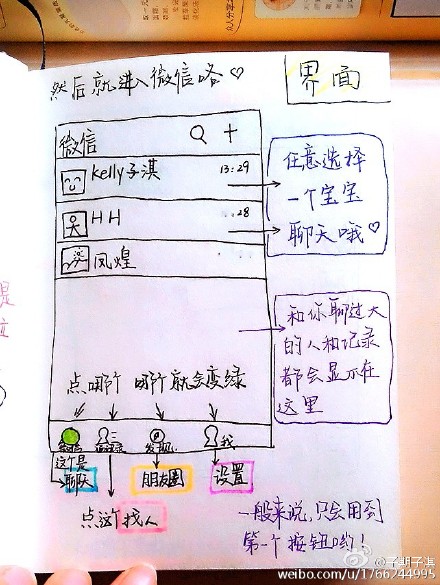 然后就进入微信咯♡
界面
微信
Kelly子淇 13:29
HH :28
凤煌
任意选择
一个宝宝
聊天哦♡
和你聊过天
的人和记录
都会显示在
这里
点哪个 哪个就会变绿
微信 我
这个是
聊天
点这个找人
朋友圈
设置
一般来说,只会用到
第一个按钮哟!
@子期子淇
weibo.com/u/1766244995